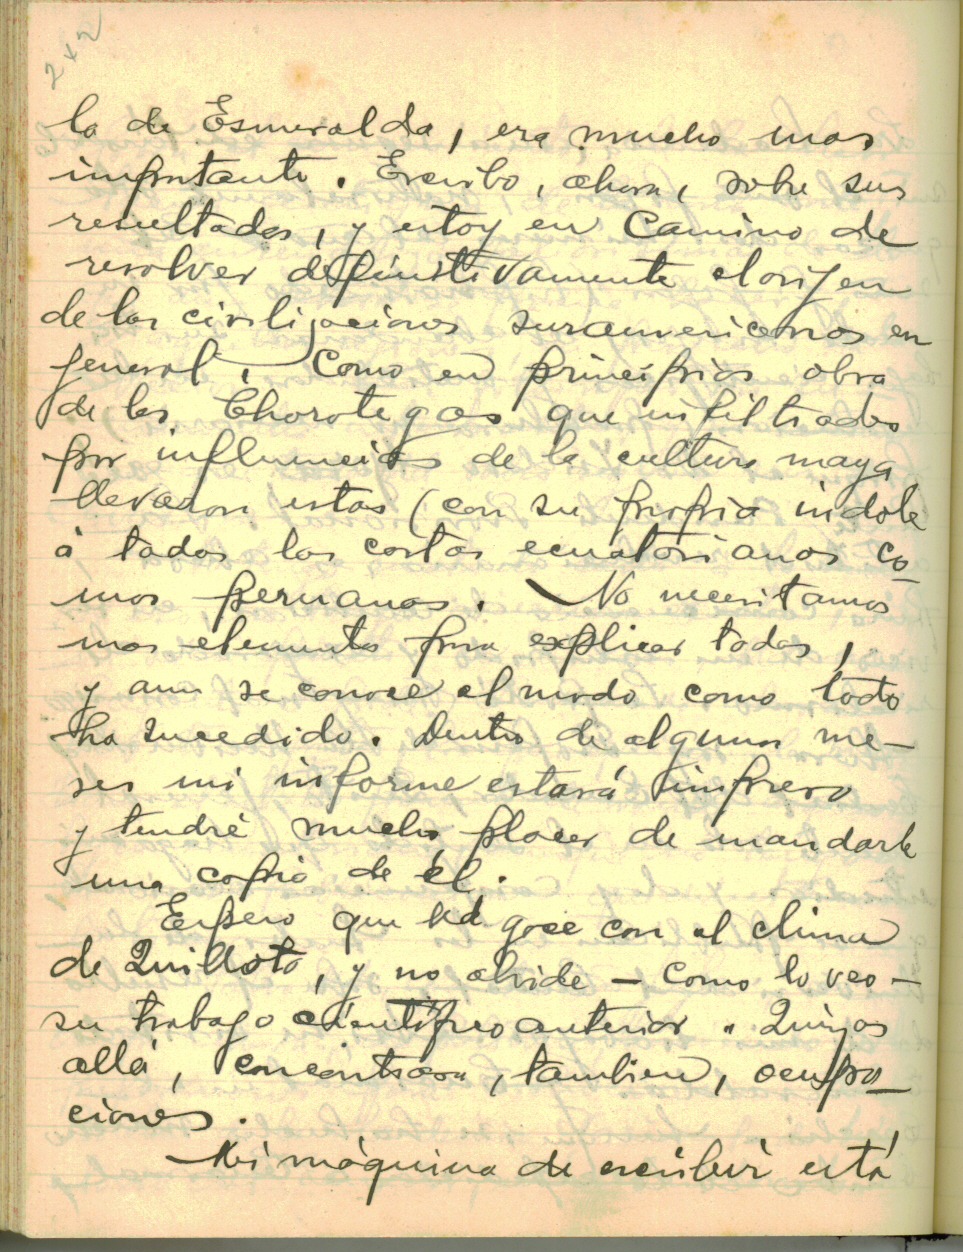 2x2
la de Esmeralda, era mucho mas
importante. Escribo, ahora, sobre sus
resultados, y estoy en Camino de
resolver definitivamente el orijen
de las civilizaciones suramericanas en
jeneral, Como en principios obra
de los Chorotegas que infiltrados
por influencias de la cultura maya
llevaron estas (con su propria indole
á todas las costas ecuatorianas co-
mos peruanas. No necesitamos
mas elementos para explicar todos,
y aun se conoce el modo como todo
ha sucedido. Dentro de algunos me-
ses mi informe estará impreso
y tendré mucho placer de mandarle
una copia de él.
Espero que Ud goce con el clima
de Quillota, y no olvide – como lo veo –
su trabajo cientifico anterior. Quizas
allá, encontrara, tambien, ocupa-
ciones.
Mi máquina de escribir está